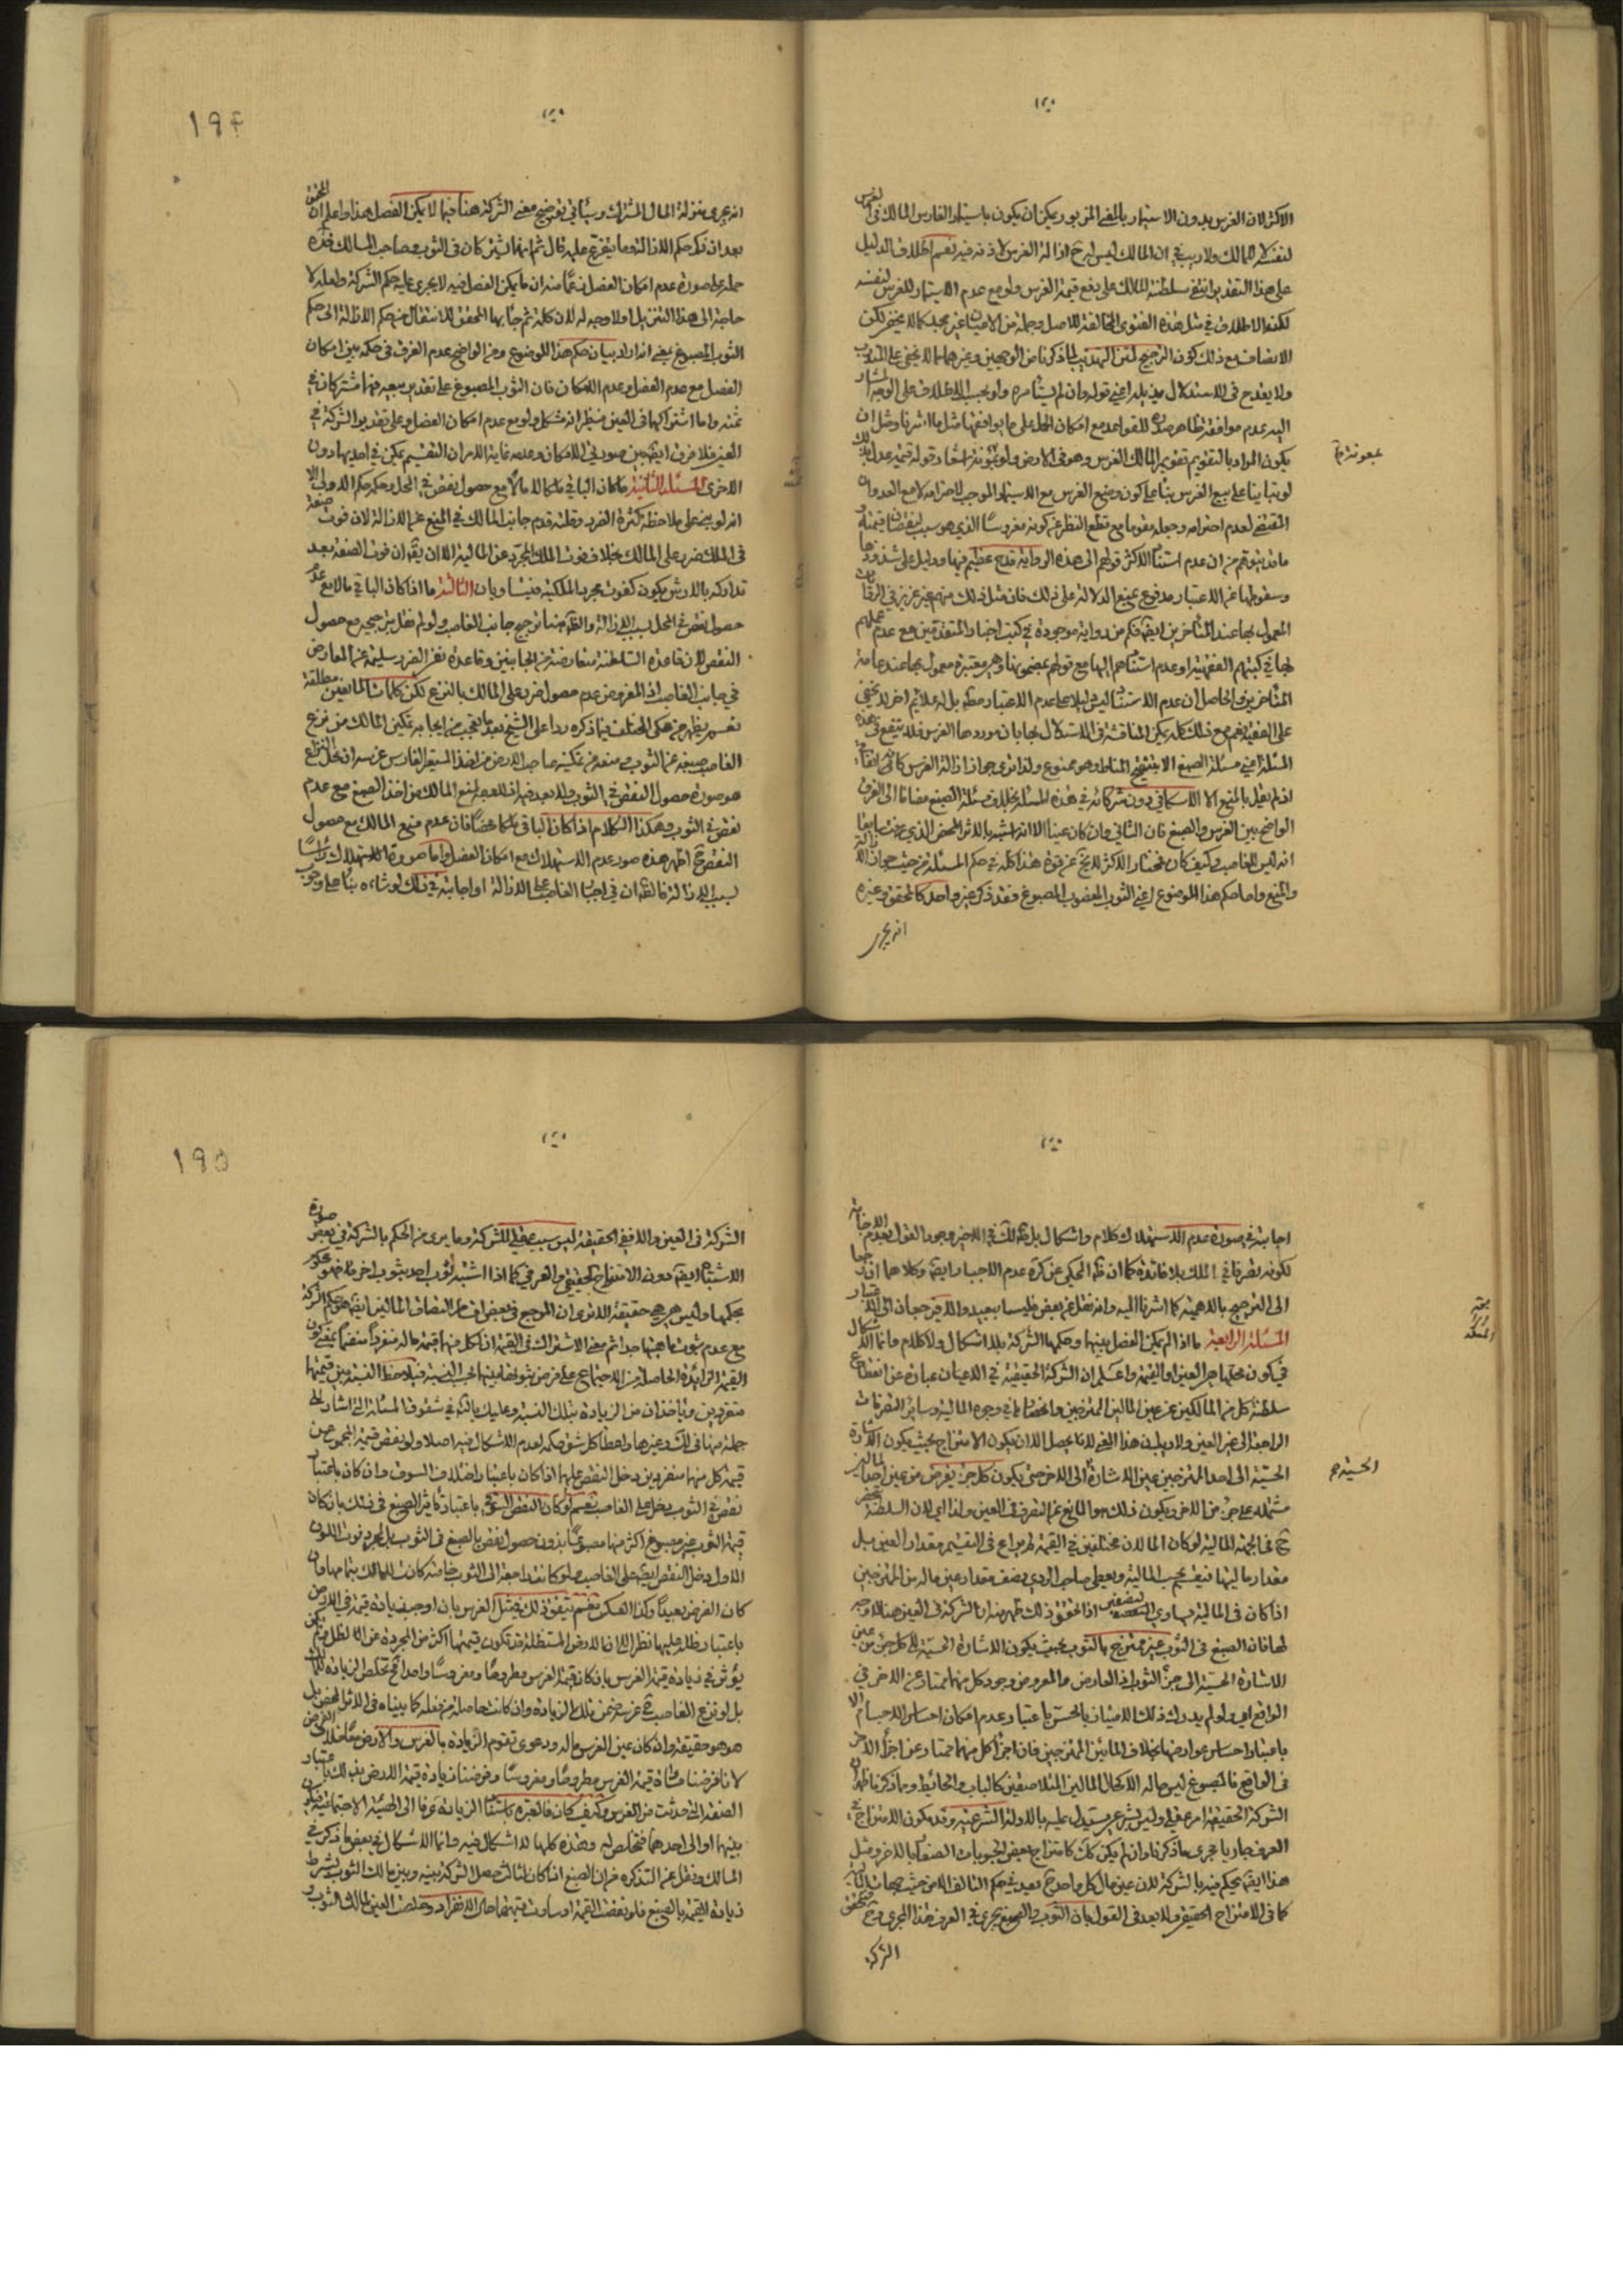 ١٢٠
الاكثر لان الغرس بدون الاستيمار بالمعنى المزبور يمكن ان يكون باستيمار الغارس المالك في الغرس
لنفسه لا للمالك ولا ريب في ان المالك ليس له ح ازالة الغرس لاذنه فيه نعم اطلاق الدليل
على هذا التقدير انتفى سلطنة المالك على دفع قيمة الغرس ولو مع عدم الاستيمار للغرس لنفسه
لكنه الاطلاق في مثل هذه الفتوى المخالفة للاصل وجملة من غير مجد كما لا يخفى لكن
الانصاف مع ذلك كون الترجيح لما ذكرنا من الوجهين وغيرهما مما لا يخفى على المتدرب
ولا يقدح في الاستدلال اعني قوله وان لم يستأمره ولو بحسب الاطلاق على الوجه المشار
اليه عدم موافقة ظاهر للقواعد مع امكان الحمل على ما يوافقها مثل ما اشرنا ومثل ان
يكون المراد بالتقويم تقويم المالك الغرس وهو في الارض ولو بمؤنة قوله قيمة عدل
لو تبايناه على بيع الغرس بناء على كون وضع الغرس مع الاستيمار الموجب لاحترامه لا مع العدوان
المقتضي لعدم احترامه وجعله مقوما مع قطع النظر عن كونه مغروسا الذي هو سبب لنقصان قيمته و
ما قد يتوهم من ان عدم استناد الاكثر قولهم الى هذه الرواية قدح عظيم فيها ودليل على شذوذها
وسقوطها عن الاعتبار مدفوع بمنع الدلالة على ذلك فان مثل ذلك منهم غير عزيز في الروايات
المعمول بها عند المتأخرين ايضا فكم من رواية موجودة في كتب اخبار المتقدمين مع عدم عملهم
بها في كتبهم الفقهية او عدم استنادهم اليها مع قولهم بمضمونها وهي معتبرة معمول بها عند عامة
المتأخرين والحاصل ان عدم الاستناد ليس دليلا على عدم الاعتبار مطلقا بل له علائم اخر لا يخفى
على الفقيه نعم مع ذلك كله يمكن المناقشة في الاستدلال بها بان موردها الغرس فلا ينفع في هذه
المسئلة اعني مسئلة الصبغ الا بتنقيح المناط وهو ممنوع ولذا ترى جواز ازالة الغرس كانه اتفاقي
اذ لم يقل بالمنع الا الاسكافي دون شركائه في هذه المسئلة بخلاف مسئلة الصبغ مضافا الى الفرق
الواضح بين الغرس والصبغ فان الثاني وان كان عينا الا انه اشبه بالاثر المحض الذي عرفت سابقا
انه ليس للغاصب وكيف كان فمختار الاكثر لا يخ عن قوة هذا كله في حكم المسئلة من حيث جواز الازالة
والمنع واما حكم هذا الموضوع اعني الثوب المغصوب المصبوغ فقد ذكر غير واحد كالمحقق وغيره
انه يجري
بمعونته
١٢٠
١٩۴
انه يجري بمنزلة المال المشترك وسيأتي توضيح معنى الشركة هنا فيما لا يمكن الفصل هذا واعلم ان المحقق
بعد ان ذكر حكم الازالة وما يتفرع عليه قال ثم انهما يشتركان في الثوب وصاحب المسالك
حمله على صورة عدم امكان الفصل زعما منه ان ما يمكن الفصل فيه لا يجري عليه حكم الشركة ولعله لا
حاجة الى هذا التنزيل اولا وجه له لان كلمة ثم جاء بها المحقق للانتقال من حكم الازالة الى حكم
الثوب المصبوغ يعني انه اراد بيان حكم هذا الموضوع ومن الواضح عدم الفرق في حكمه بين امكان
الفصل مع عدم الفصل وعدم الامكان فان الثوب المصبوغ على تقدير بيعه فهما مشتركان في
ثمنه واما اشتراكهما في العين فيظهر انه مشكل ولو مع عدم امكان الفصل وعلى تقدير الشركة في
العين فلا فرق ايضا بين صورتي الامكان وعدمه غاية الامر ان التقسيم يمكن في احديهما دون
الاخرى المسئلة الثانية ما كان الباقي ملكا لا مالا مع حصول نقص في المحل وحكمه حكم الاولى الا
انه لو بني على ملاحظة كثرة الضرر وقلته قدم جانب المالك في المنع عن الازالة لان فوت صفة
في الملك ضرر على المالك بخلاف فوت الملك المجرد عن المالية الا ان يقال ان فوت الصفة بعد
تداركه بالارش يكون كفوت مجرد الملكية فيتساويان الثالثة ما اذا كان الباقي مالا مع عدم
حصول نقص في المحل بسبب الازالة والظاهر هنا ترجيح جانب الغاصب ولو لم نقل بترجيحه مع حصول
النقص لان قاعدة السلطنة متعارضة من الجانبين وقاعدة نفي الضرر سليمة عن المعارض
في جانب الغاصب اذ المفروض عدم حصول ضرر على المالك بالنزع لكن كلمات المانعين مطلقة
نعم يظهر من محكي المختلف فيما ذكره ردا على الشيخ بعد ما تعجب من ايجابه تمكين المالك من نزع
الغاصب صبغه عن الثوب ومنعه من تمكينه صاحب الارض من اخذ المستعير الغارس غرسه ان محل النزاع
هو صورة حصول النقص في الثوب ولا بعد فيه اذ لا وجه لمنع المالك من اخذ الصبغ مع عدم
نقص في الثوب وهكذا الكلام اذا كان الباقي ملكا محضا فان عدم منع المالك مع حصول
النقص ح اظهر هذه صور عدم الاستهلاك مع امكان الفصل واما صورة الاستهلاك رأسا
بسبب الازالة فالظاهر ان في اجبار الغاصب على الازالة او اجابته في ذلك لو شاءه بناء على وجوب
١٢٠
اجابته في صورة عدم الاستهلاك كلام واشكال بل الظاهر ذلك في الاخير وجوها القول بعدم الاجابة
لكونه تصرفا في الملك بلا فائدة كما ان ظاهر المحكي عن كره عدم الاجبار ايضا وكلاهما
الى الترجيح بالاهمية كما اشرنا اليه وانه نقل عن بعض فليس ببعيد والله يرجعان الى الاعتبار
المسئلة الرابعة ما اذا لم يمكن الفصل بينهما وحكمها الشركة بلا اشكال ولا كلام وانما الاشكال
في كون محلها هو العين او القيمة واعلم ان الشركة الحقيقية في الاعيان عبارة عن انقطاع
سلطنة كل من المالكين عن عين المالين الممتزجين وانحصارها في وجوه المالية وسائر التصرفات
الراجعة الى غير العين ولا ريب ان هذا المعنى لا يحصل الا ان يكون الامتزاج بحيث يكون الاشارة
الحسية الى احد الممتزجين عين الاشارة الى الاخر حتى يكون كل جزء يفرض من عين احد المالين
مشتملة على جزء من الاخر ويكون ذلك هو المانع عن التصرف في العين ولذا اي لان السلطنة تنحصر
ح في الجهة المالية لو كان المالان مختلفين في القيمة لم يراع في التقسيم مقدار العين بل
مقدار ماليتها فيقسم بحسب المالية ويعطى صاحب الردي نصف مقدار عين ماله من الممتزجين
اذا كان في المالية مساوي النصفين اذا تحقق ذلك ظهر منه ان الشركة في العين هنا لا وجه
لها فان الصبغ في الثوب غير ممتزج بالثوب بحيث يكون الاشارة الحسية الى كل جزء من عين
الاشارة الحسية الى جزء الثوب اذ العارض والمعروض وجود كل منهما ممتاز عن الاخر في
الواقع اي ولو لم يدرك ذلك الامتياز بالحس باعتبار عدم امكان احساس الاجسام الا
باعتبار احساس عوارضها بخلاف المائين الممتزجين فان اجزاء كل منهما ممتاز عن اجزاء الاخر
في الواقع فالمصبوغ ليس حاله الا كحال المالين المتلاصقين كالباب والحائط وما ذكرنا ظهر ان
الشركة الحقيقية امر عقلي وليس بشرعي يستدل عليه بالادلة الشرعية وقد يكون الامتزاج في
العرف جاريا مجرى ما ذكرنا وان لم يكن كك كامتزاج بعض الحبوبات الصغار بالاخر ومثل
هذا ايضا يحكم فيه بالشركة لان عين مال كل واحد ح يعد في حكم التالف الا من حيث جهات المالية
كما في الامتزاج الحقيقي ولا بعد في القول بان الثوب والصبغ يجري في العرف هذا المجرى وح فتحقق
الشركة
الحسية
١٢٠
١٩۵
الشركة في العين والا ففي الحقيقة ليس سبب عقلي للشركة وما يرى من الحكم بالشركة في بعض صورة
الاشتباه ايضا دون الامتزاج الحقيقي والعرفي كما اذا اشتبه ثوب احد بثوب اخر مثلا فهو محكوم
بحكمها وليس هي هي حقيقة الا ترى ان المرجع في بعض اقسام التصاق المالين ايضا هو حكم الشركة
مع عدم ثبوت ماهيتها جدا ثم معنى الاشتراك في القيمة ان كل منهما قيمة ماله منفردا منضما يعني كون
القيمة الزائدة الحاصلة من الاجتماع على فرض ثبوتها بينهما بحسب النسبة فيلاحظ النسبة بين قيمتهما
منفردين ويأخذان من الزيادة بتلك النسبة وعليك بالتأمل في شقوق المسئلة التي اشار الى
جملة منها في لك وغيرها واعطاء كل شق حكمه لعدم الاشكال فيه اصلا ولو نقص قيمة المجموع من
قيمة كل منهما منفردين دخل النقص عليهما اذا كان باعتبار اختلاف السوق وان كان باعتبار
نقص في الثوب دخل على الغاصب نعم لو كان النقص السوقي باعتبار تاثير الصبغ في ذلك بان كان
قيمة الثوب غير مصبوغ اكثر منها مصبوغا بدون حصول نقص بالصبغ في الثوب بل لمجرد فوت اللون
الاول دخل النقص ايضا على الغاصب ولو كانت راجعة الى الثوب خاصة كانت للمالك بتمامها وان
كان الفرض بعيدا وكذا العكس نعم يتفق ذلك في مثل الغرس بان اوجب زيادة قيمة في الارض
باعتبار ظله عليها نظرا الى ان الارض المستظلة قد تكون قيمتها اكثر من المجردة عن الظل
يؤثر في زيادة قيمة الغرس بان كان قيمة الغرس مطروحا ومغروسا واحدا ح تخلص الزيادة للمالك
بل لو نزع الغاصب ح غرسه ضمن تلك الزيادة وان كانت حاصلة من فعله كما بيناه في الاثر المحض بل
هو هو حقيقة وان كان عين الغرس ماله ودعوى تقوم الزيادة بالغرس والارض معا خلاف الفرض
لانا فرضنا مساواة قيمة الغرس مطروحا ومغروسا وفرضنا زيادة قيمة الارض بذلك باعتبار
الصفة التي حدثت من الغرس وكيف كان فالعبرة باستناد الزيادة عرفا الى الهيئة الاجتماعية فيكون
بينهما او الى احدهما فتخلص له وهذه كلها لا اشكال فيه وانما الاشكال في بعض ما ذكر في
المسالك ونقل عن التذكرة من ان الصبغ اذا كان لثالث حصل الشركة بينه وبين مالك الثوب بشرط
زيادة القيمة بالصبغ فلو نقصت القيمة او ساوت قيمتهما حال الانفراد وخلصت العين لمالك الثوب و